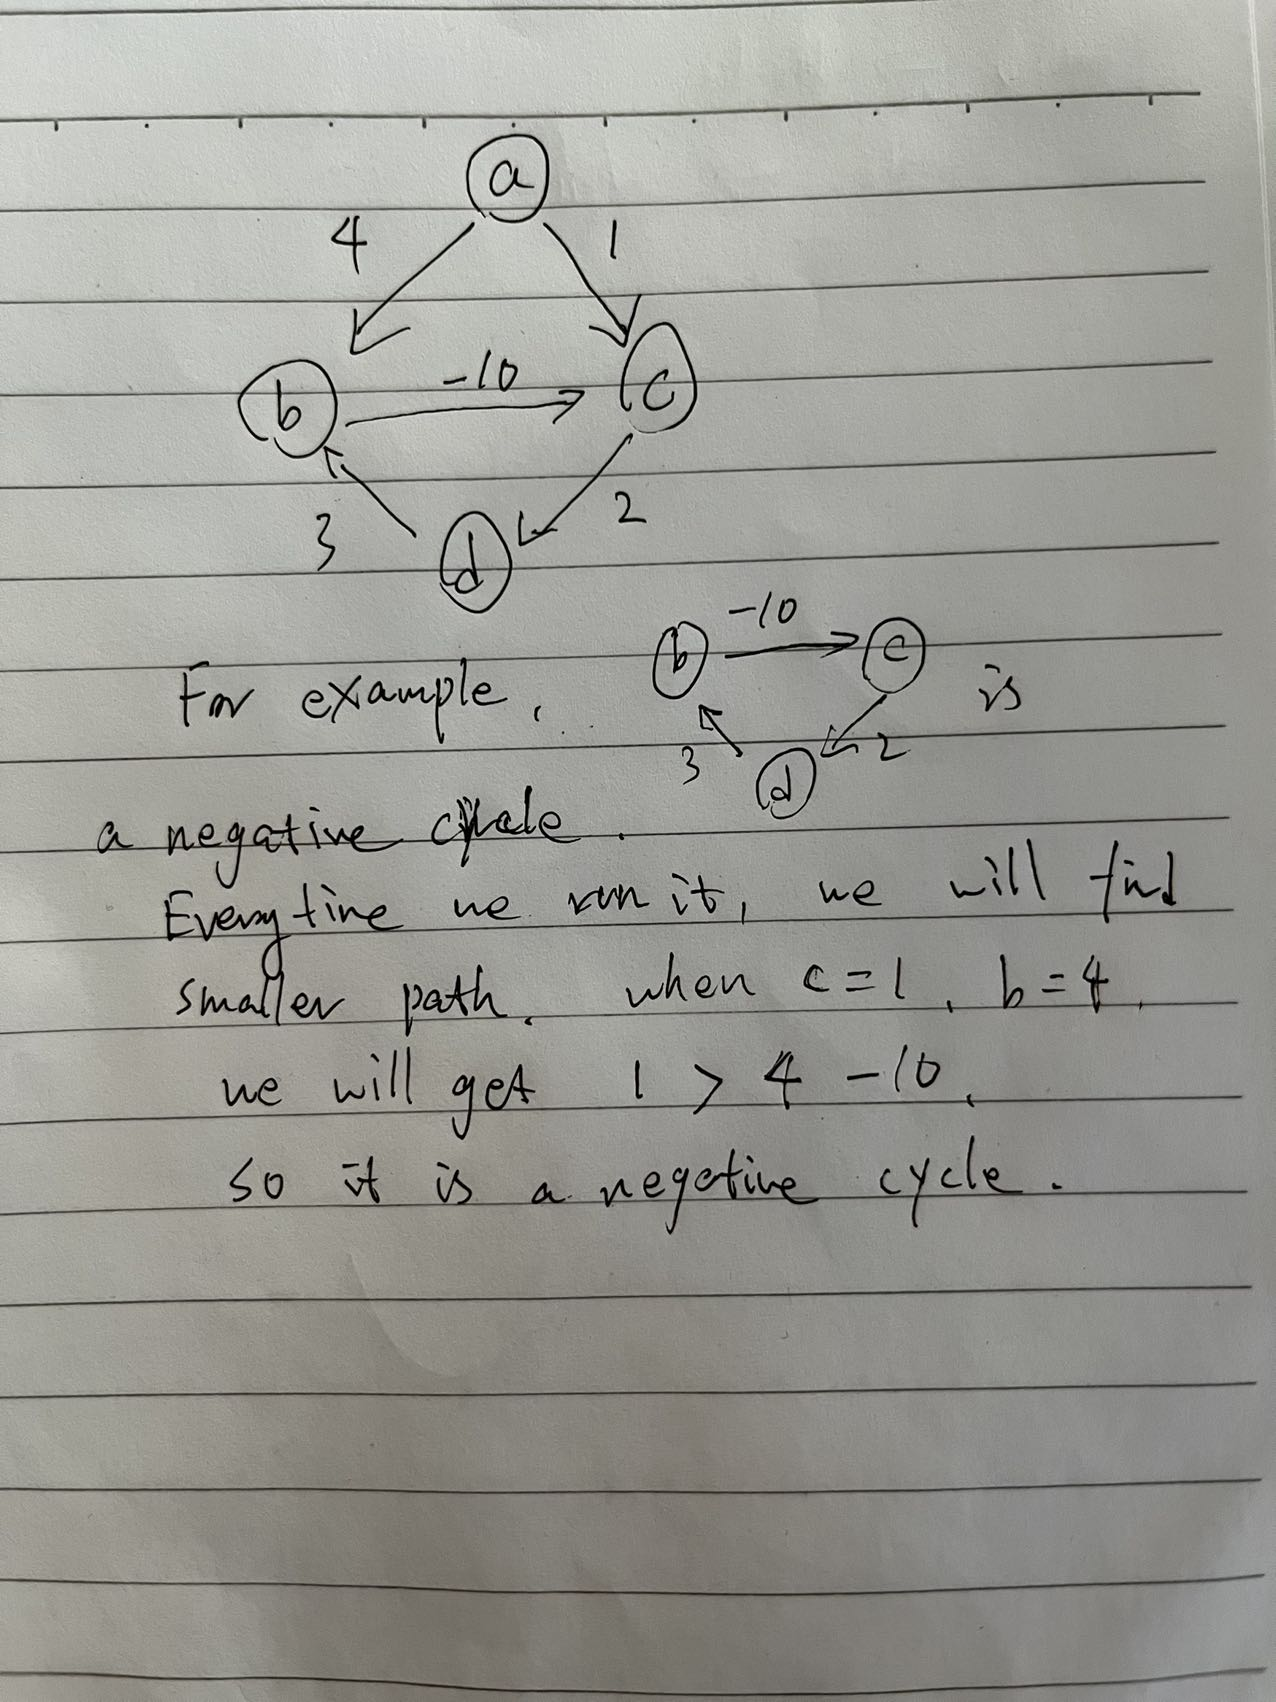 a
4 1
b -10 c
3 d 2
b -10 c
For example, is
3 d 2
a negative cycle.
Everytime we run it, we will find
smaller path. when c=1, b=4,
we will get 1 > 4 -10,
so it is a negative cycle.